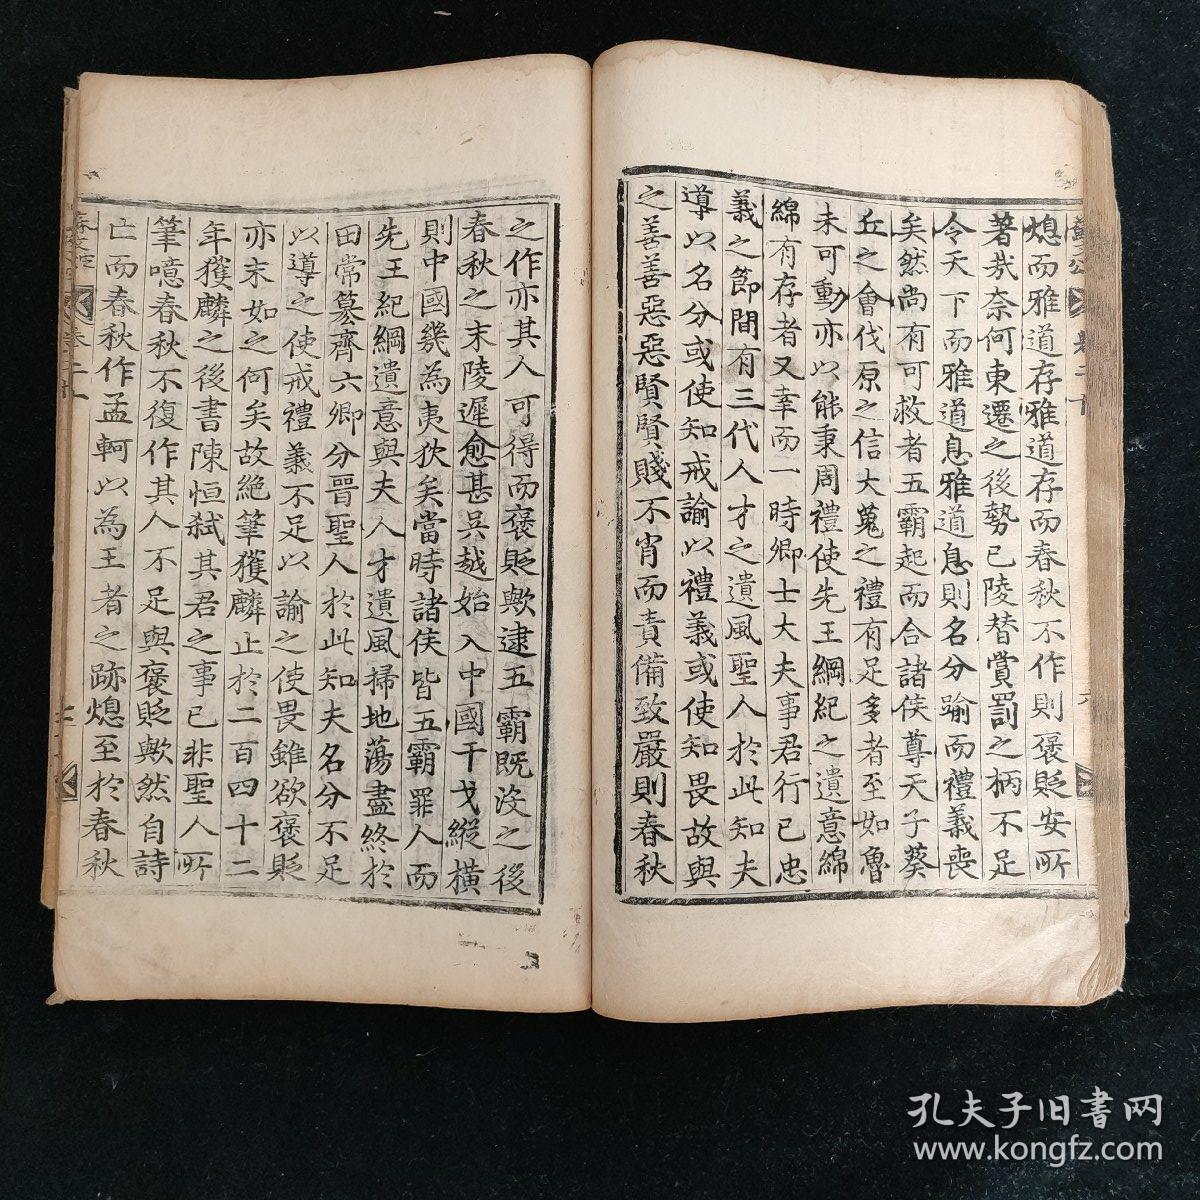 熄而雅道存雅道存而春秋不作則褒貶安所
著哉奈何東遷之後勢已陵替賞罰之柄不足
令天下而雅道息雅道息則名分踰而禮義喪
矣然尚有可救者五霸起而合諸侯尊天子葵
丘之會伐原之信大蒐之禮有足多者至如魯
未可動亦以能秉周禮使先王綱紀之遺意綿
綿有存者又幸而一時卿士大夫事君行已忠
義之節間有三代人才之遺風聖人於此知夫
導以名分或使知戒諭以禮義或使知畏故與
之善善惡惡賢賢賤不肖而責備致嚴則春秋
之作亦其人可得而褒貶歟逮五霸既沒之後
春秋之末陵遲愈甚吳越始入中國干戈縱橫
則中國幾為夷狄矣當時諸侯皆五霸罪人而
先王紀綱遺意與夫人才遺風掃地蕩盡終於
田常篡齊六卿分晉聖人於此知夫名分不足
以導之使戒禮義不足以諭之使畏雖欲褒貶
亦末如之何矣故絕筆獲麟止於二百四十二
年獲麟之後書陳恒弒其君之事已非聖人所
筆噫春秋不復作其人不足與褒貶歟然自詩
亡而春秋作孟軻以為王者之跡熄至於春秋
孔夫子旧书网
www.kongfz.com